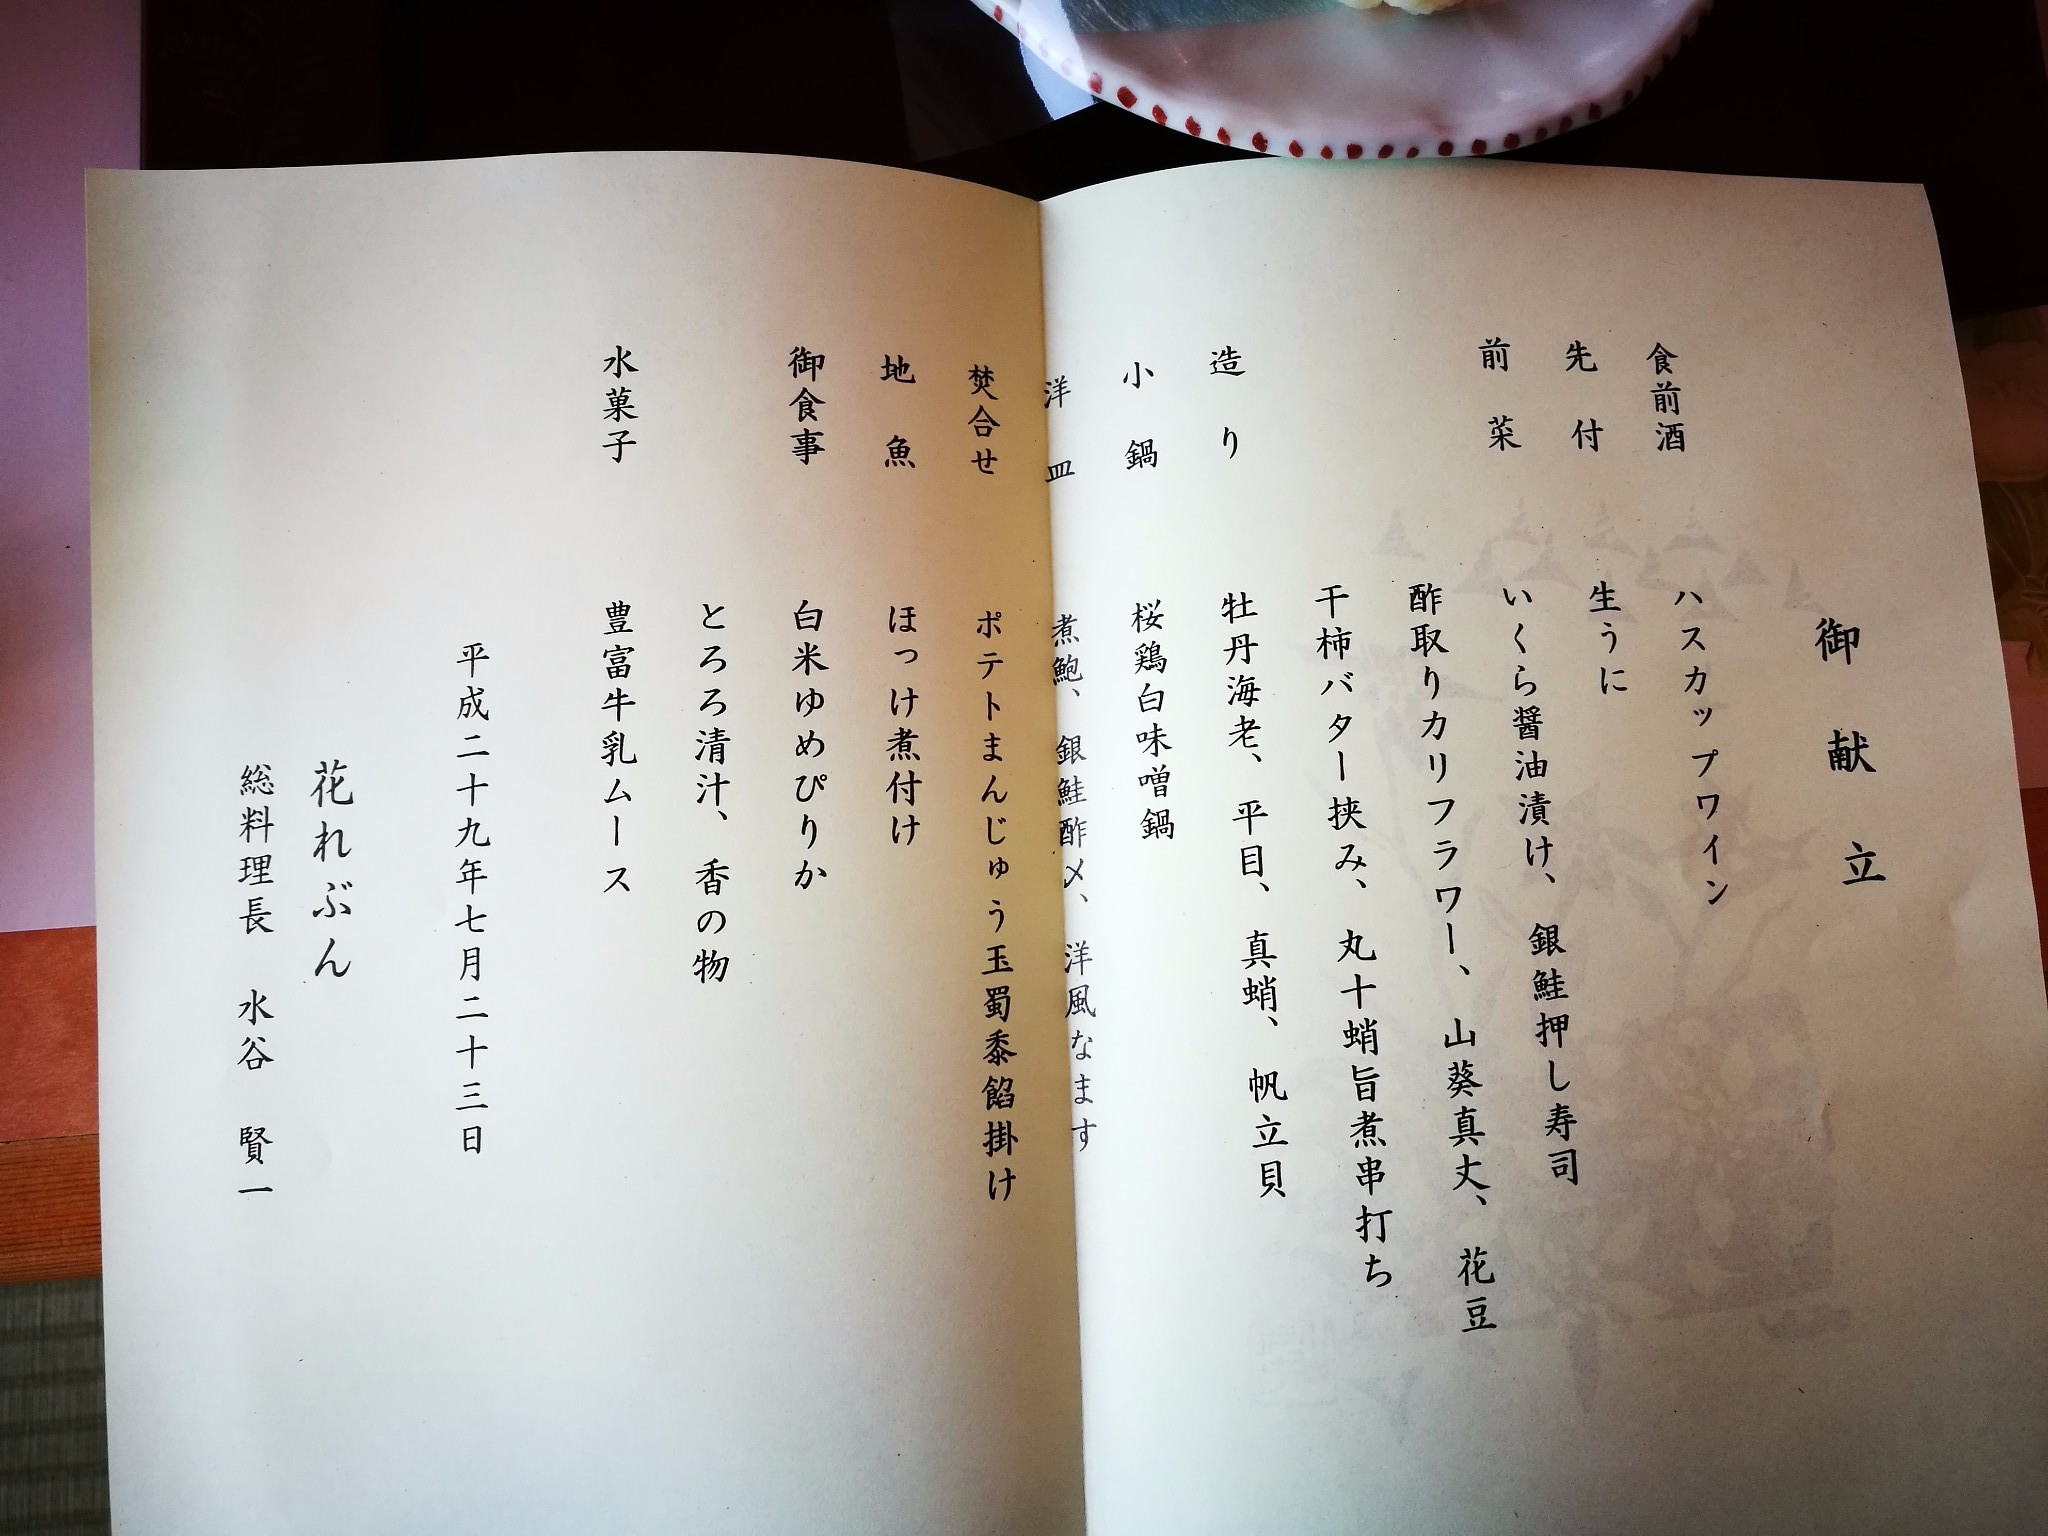 御献立
食前酒 ハスカップワイン
先付 生うに
前菜 いくら醤油漬け、銀鮭押し寿司
酢取りカリフラワー、山葵真丈、花豆
干柿バター挟み、丸十蛸旨煮串打ち
造り 牡丹海老、平目、真蛸、帆立貝
小鍋 桜鶏白味噌鍋
洋皿 煮鮑、銀鮭酢〆、洋風なます
焚合せ ポテトまんじゅう玉蜀黍餡掛け
地魚 ほっけ煮付け
御食事 白米ゆめぴりか
とろろ清汁、香の物
水菓子 豊富牛乳ムース
平成二十九年七月二十三日
花れぶん
総料理長 水谷 賢一